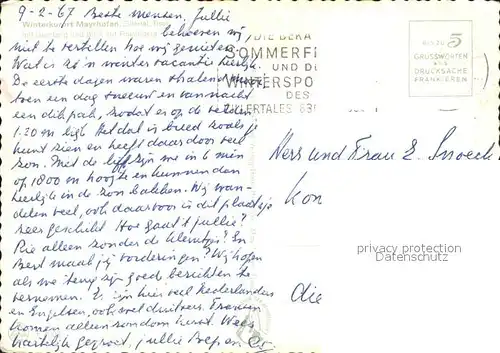 9-2-67 Beste mensen, jullie
Winterkurort Mayrhofen, Zillertal, Tirol
behoeven wij
niet te vertellen hoe wij genieten.
Wat is zo'n winter vacantie heerlijk.
De eerste dagen waren stralend
toen een dag sneeuw en van nacht
een dik pak, zodat er op de velden
1.20 m ligt. Het dal is breed zoals je
kunt zien en heeft daardoor veel
zon. Met de lift zijn we in 6 min
op 1800 m hoogte en kunnen dan
heerlijk in de zon bakken. Wij wan-
delen veel, ook daarvoor is dit plaatsje
zeer geschikt. Hoe gaat 't jullie?
Zie alleen zonder de kleintjes? En
Bert maak jij vorderingen? Wij hopen
als we terug zijn goede berichten te
vernemen. Er zijn hier veel Nederlanders
en Engelsen, ook wel duitsers. Fransen
komen alleen rondom kerst. Wees
hartelijk gegroet, jullie en
DIE BEKA
SOMMERFR
UND DE
WINTERSPO
DES
ZILLERTALES 630
BIS ZU 5
GRUSSWORTEN
ALS
DRUCKSACHE
FRANKIEREN
Herr und Frau E. Snoeck
Kon
die
privacy protection
Datenschutz